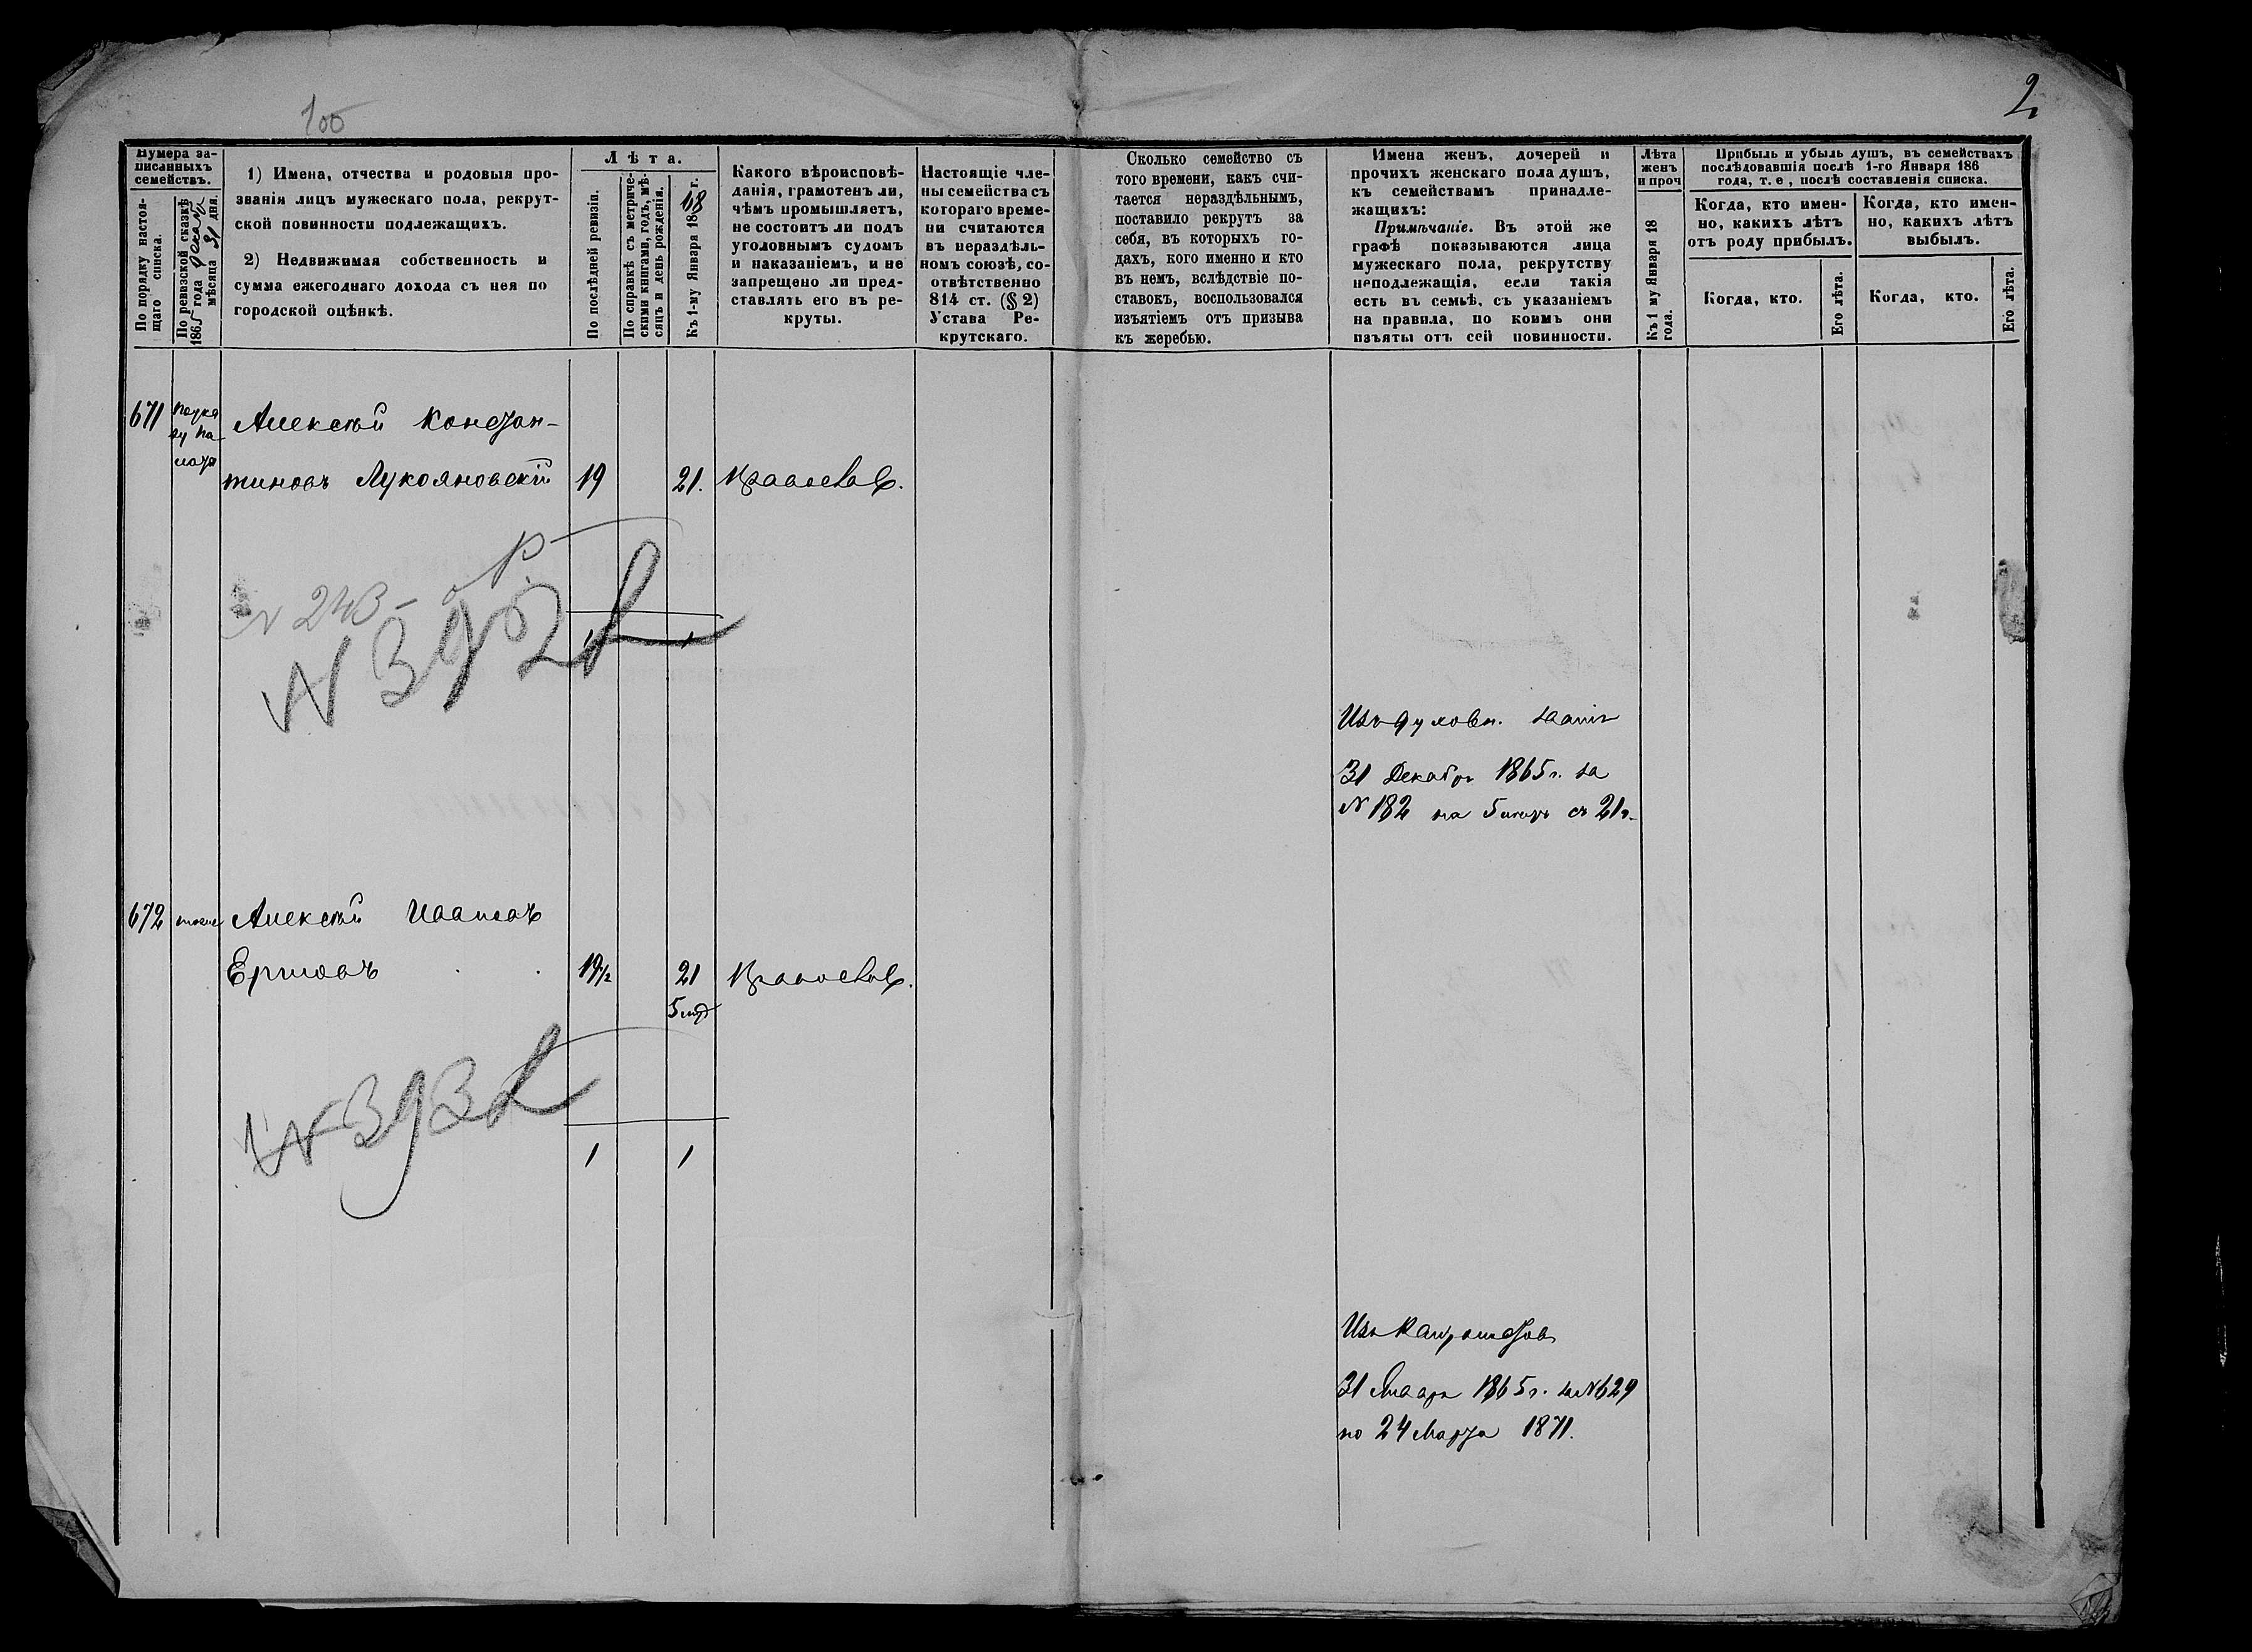 100
2
Нумера за-
писанныхъ
семействъ.
По порядку настоя-
щаго списка.
По ревизской сказкѣ
1865 года декаб
мѣсяца 31 дня.
1) Имена, отчества и родовыя про-
званія лицъ мужескаго пола, рекрут-
ской повинности подлежащихъ.
2) Недвижимая собственность и
сумма ежегоднаго дохода съ нея по
городской оцѣнкѣ.
Лѣта.
По послѣдней ревизіи.
По справкѣ съ метриче-
скими книгами, годъ, мѣ-
сяцъ и день рожденія.
Къ 1-му Января 1868 г.
Какого вѣроисповѣ-
данія, грамотенъ ли,
чѣмъ промышляетъ,
не состоитъ ли подъ
уголовнымъ судомъ
и наказаніемъ, и не
запрещено ли пред-
ставлять его въ ре-
круты.
Настоящіе чле-
ны семейства съ
котораго време-
ни считаются
въ нераздѣль-
номъ союзѣ, со-
отвѣтственно
814 ст. (§ 2)
Устава Ре-
крутскаго.
Сколько семейство съ
того времени, какъ счи-
тается нераздѣльнымъ,
поставило рекрутъ за
себя, въ которыхъ го-
дахъ, кого именно и кто
въ немъ, вслѣдствіе по-
ставокъ, воспользовался
изъятіемъ отъ призыва
къ жеребью.
Имена женъ, дочерей и
прочихъ женскаго пола душъ,
къ семействамъ принадле-
жащихъ:
Примѣчаніе. Въ этой же
графѣ показываются лица
мужескаго пола, рекрутству
неподлежащія, если такія
есть въ семьѣ, съ указаніемъ
на правила, по коимъ они
изъяты отъ сей повинности.
Лѣта
женъ
и проч
Къ 1 му Января 18
года.
Прибыль и убыль душъ, въ семействахъ
послѣдовавшія послѣ 1-го Января 186
года, т. е, послѣ составленія списка.
Когда, кто имен-
но, какихъ лѣтъ
отъ роду прибылъ.
Когда, кто имен-
но, какихъ лѣтъ
выбылъ.
Когда, кто.
Его лѣта.
Когда, кто.
Его лѣта.
671
Алексѣй Констан-
тиновъ Лукояновскій 19 21. Православ.
N 243
N 392
1 1
Изъ духовн. званія
31 Декабря 1865 г. за
N 182 на 5 лѣтъ съ 21 г.
672 тоже Алексѣй Ивановъ
Ершовъ 19½ 21 Православ.
N 393
1 1
Изъ Кантонистовъ
31 Января 1865 г. за N 629
по 24 Марта 1871.